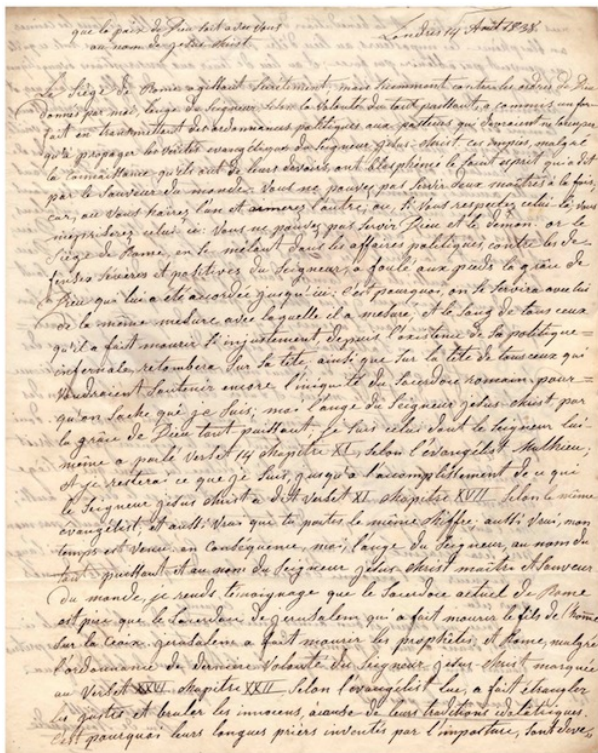 que la paix de Dieu soit avec vous
au nom de jesus christ.
Londres 14 Août 1838.
Le Siége de Rome agissant secrètement, mais sciemment contre les ordres de Dieu
donnés par moi, l'ange du Seigneur selon la volonté du tout puissant, a commis un for-
fait en transmettant des ordonnances politiques aux pasteurs qui devraient
qu'à propager les vérités evangéliques du Seigneur jesus-christ. ces impies, malgré
la connaissance qu'ils ont de leurs devoirs, ont blasphémé le saint esprit qui a dit
par le Sauveur du monde: Vous ne pouvez pas servir deux maîtres à la fois,
car, ou vous hairez l'un et aimerez l'autre; ou, si vous respectez celui là, vous
mépriserez celui ci: vous ne pouvez pas servir Dieu et le démon. or le
Siége de Rome, en se mêlant dans les affaires politiques, contre les dé-
fenses sévères et positives du Seigneur, a foulé aux pieds la grâce de
Dieu qui lui a été accordée jusqu'ici; c'est pourquoi, on se servira avec lui
de la même mesure avec laquelle il a mesuré; et le sang de tous ceux
qu'il a fait mourir si injustement, depuis l'existence de sa politique
infernale, retombera sur sa tête ainsi que sur la tête de tous ceux qui
voudraient soutenir encore l'iniquité du Sacerdoce romain. pour-
qu'on sache qui je suis; moi l'ange du Seigneur jesus-christ par
la grâce de Dieu tout puissant, je suis celui dont le Seigneur lui-
même a parlé verset 14 chapitre XI, selon l'évangélist Mathieu;
et je resterai ce que je suis, jusqu'à l'accomplissement de ce qui
le Seigneur jesus christ a dit verset XI chapitre XVII selon le même
evangélist. et aussi vrai que tu portes le même chiffre: aussi vrai, mon
temps est venu. en conséquence, moi, l'ange du Seigneur, au nom du
tout puissant et au nom du Seigneur jesus christ maître et Sauveur
du monde, je rends témoignage que le Sacerdoce actuel de Rome
est pire que le Sacerdoce de jerusalem qui a fait mourir le fils de l'homme
sur la croix. jerusalem a fait mourir les prophètes, et Rome, malgré
l'ordonnance de dernière volonté du Seigneur jesus christ marquée
au verset XXVI chapitre XXII selon l'évangélist Luc, a fait étrangler
les justes et bruler les innocens, àcause de leurs traditions idolatriques.
c'est pourquoi leurs longues prières inventés par l'imposture, sont deve=